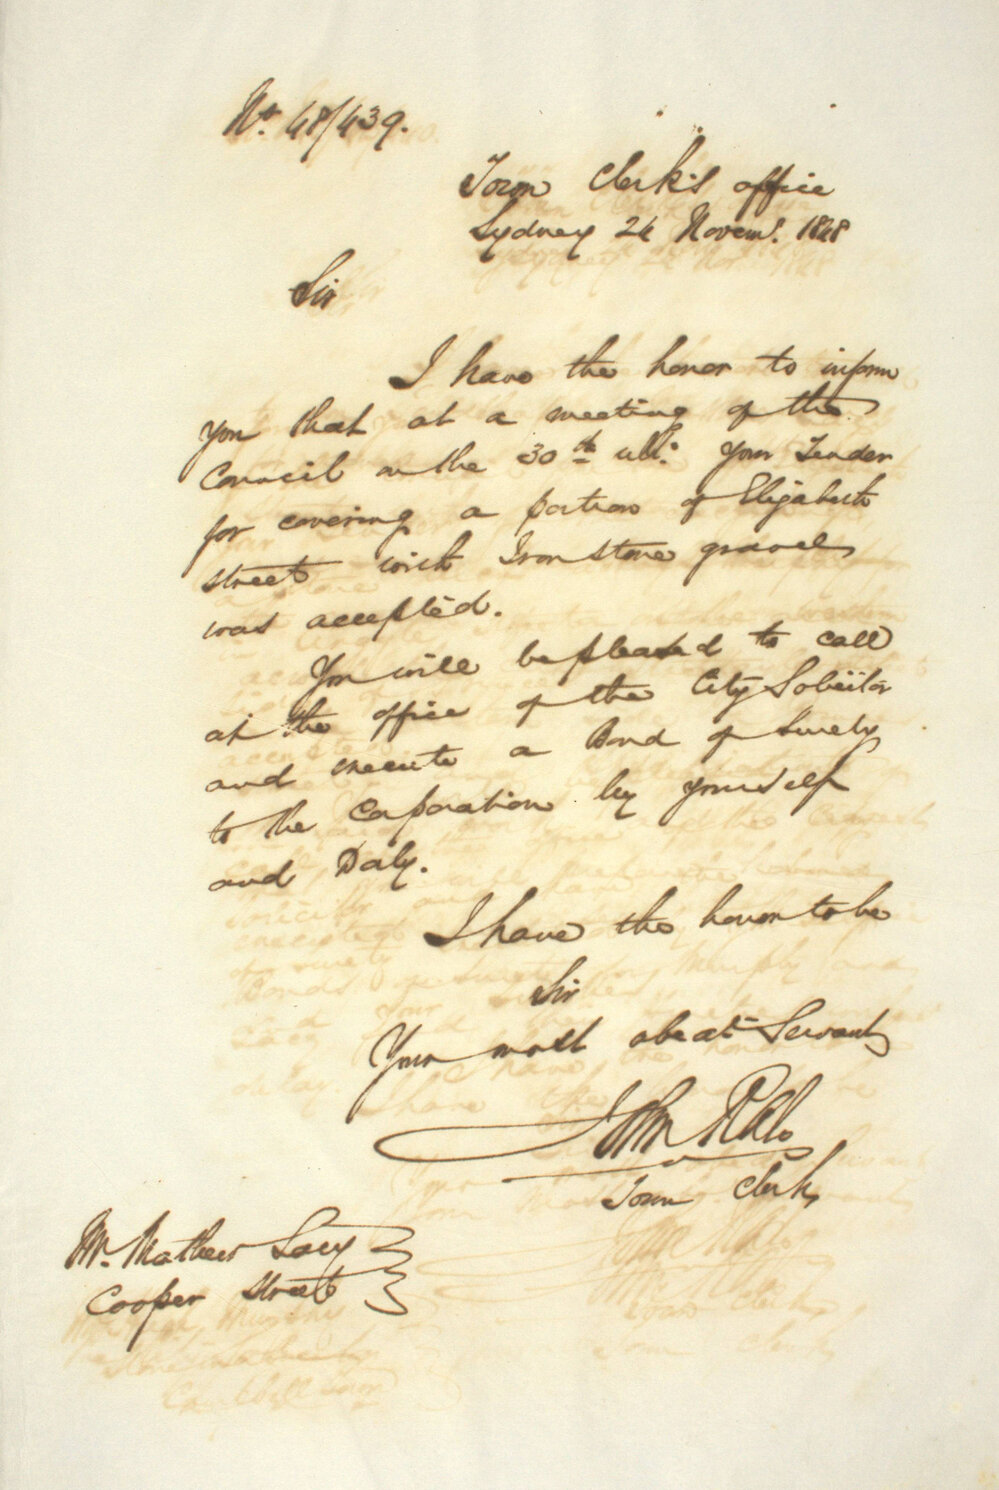 No. 48/439.
Town Clerk's office
Sydney 24 Novemr. 1848
Sir
I have the honor to inform
you that at a meeting of the
Council on the 30th ulto. your Tender
for covering a portion of Elizabeth
street with Iron stone gravel
was accepted.
You will be pleased to call
at the office of the City Solicitor
and execute a Bond of Surety
to the Corporation by yourself
and Daly.
I have the honor to be
Sir
Your most obedt Servant
John Rae
Town Clerk
Mr. Mathew Lacy
Cooper Street